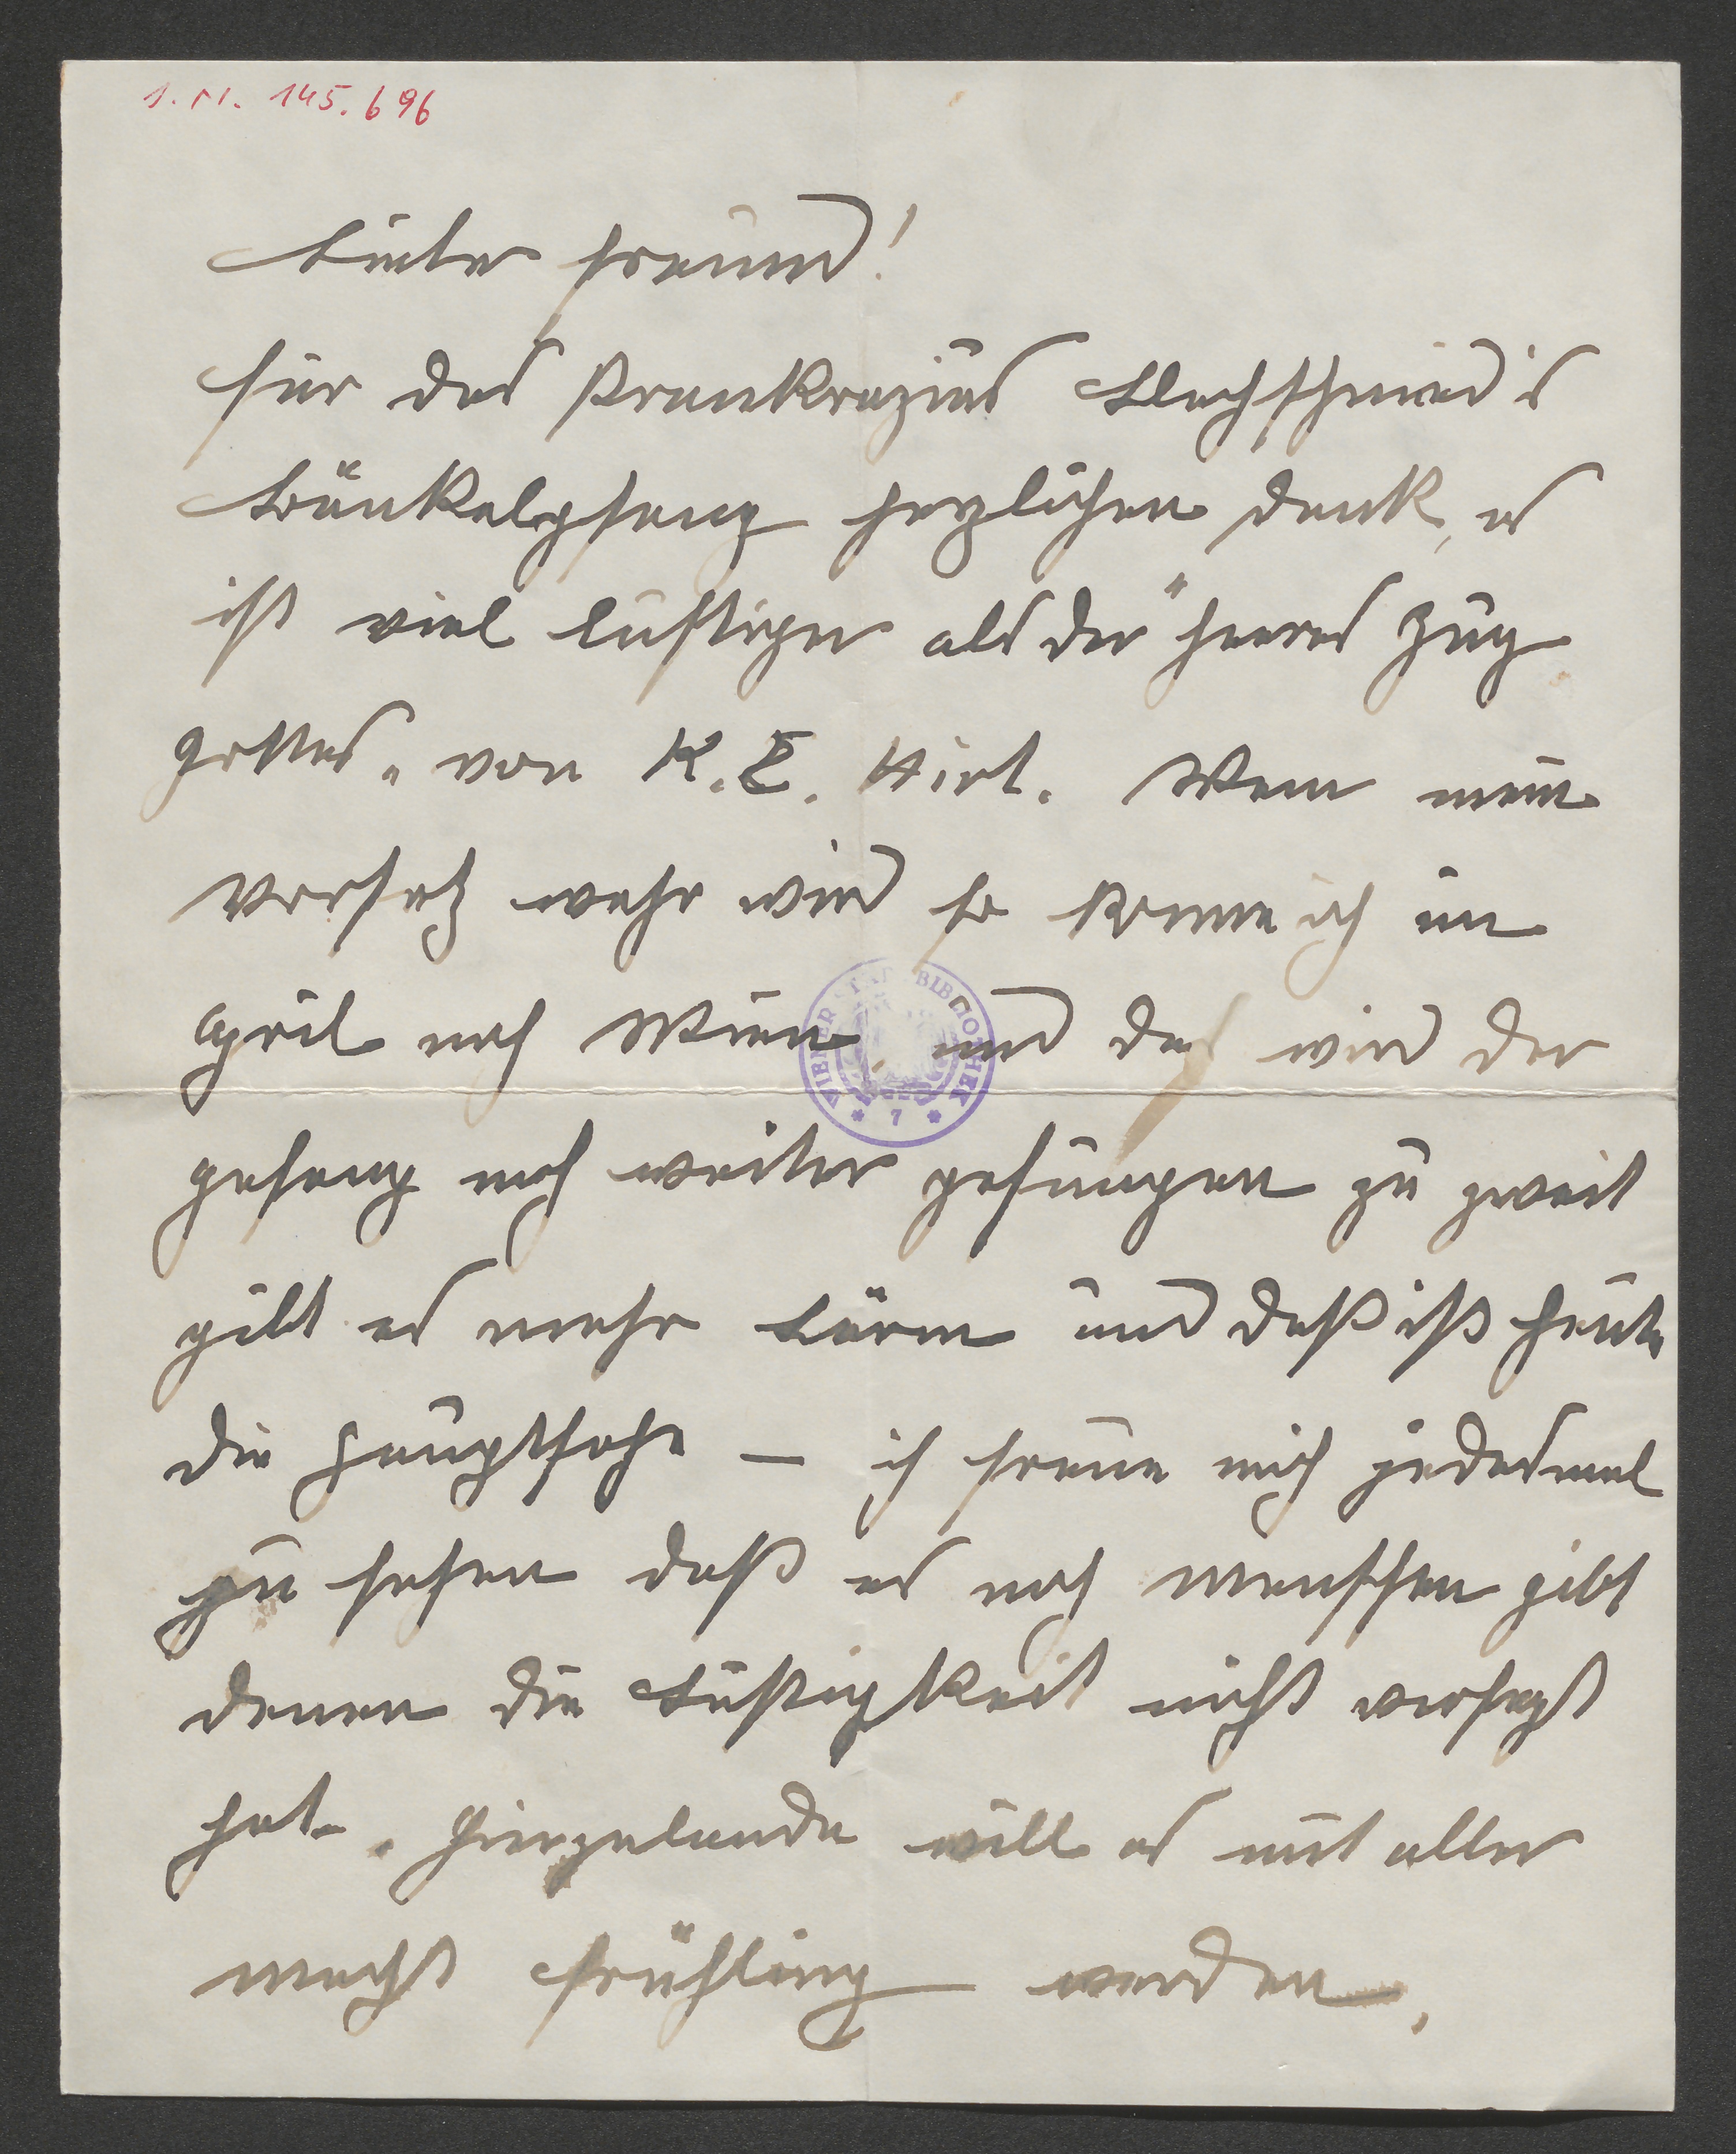 I. N. 145.696
Lieber Freund!
für des Prankrazius Blechschmied's
Bänkelgsang herzlichen Dank, es
ist viel lustiger als der "Heeres Zug
Gottes" von K. E. Hirt. Wenn mein
Vorsatz wahr wird so komme ich im
April nach Wien, und da wird der
Gesang noch weiter gesungen zu zweit
gibt es mehr Lärm und daß ist heute
die Hauptsache — ich freue mich jedesmal
zu sehen daß es noch Menschen gibt
denen die Lustigkeit nicht versagt
hat. Hierzulande will es mit aller
Macht Frühling werden,
WIENER STADTBIBLIOTHEK
* 7 *